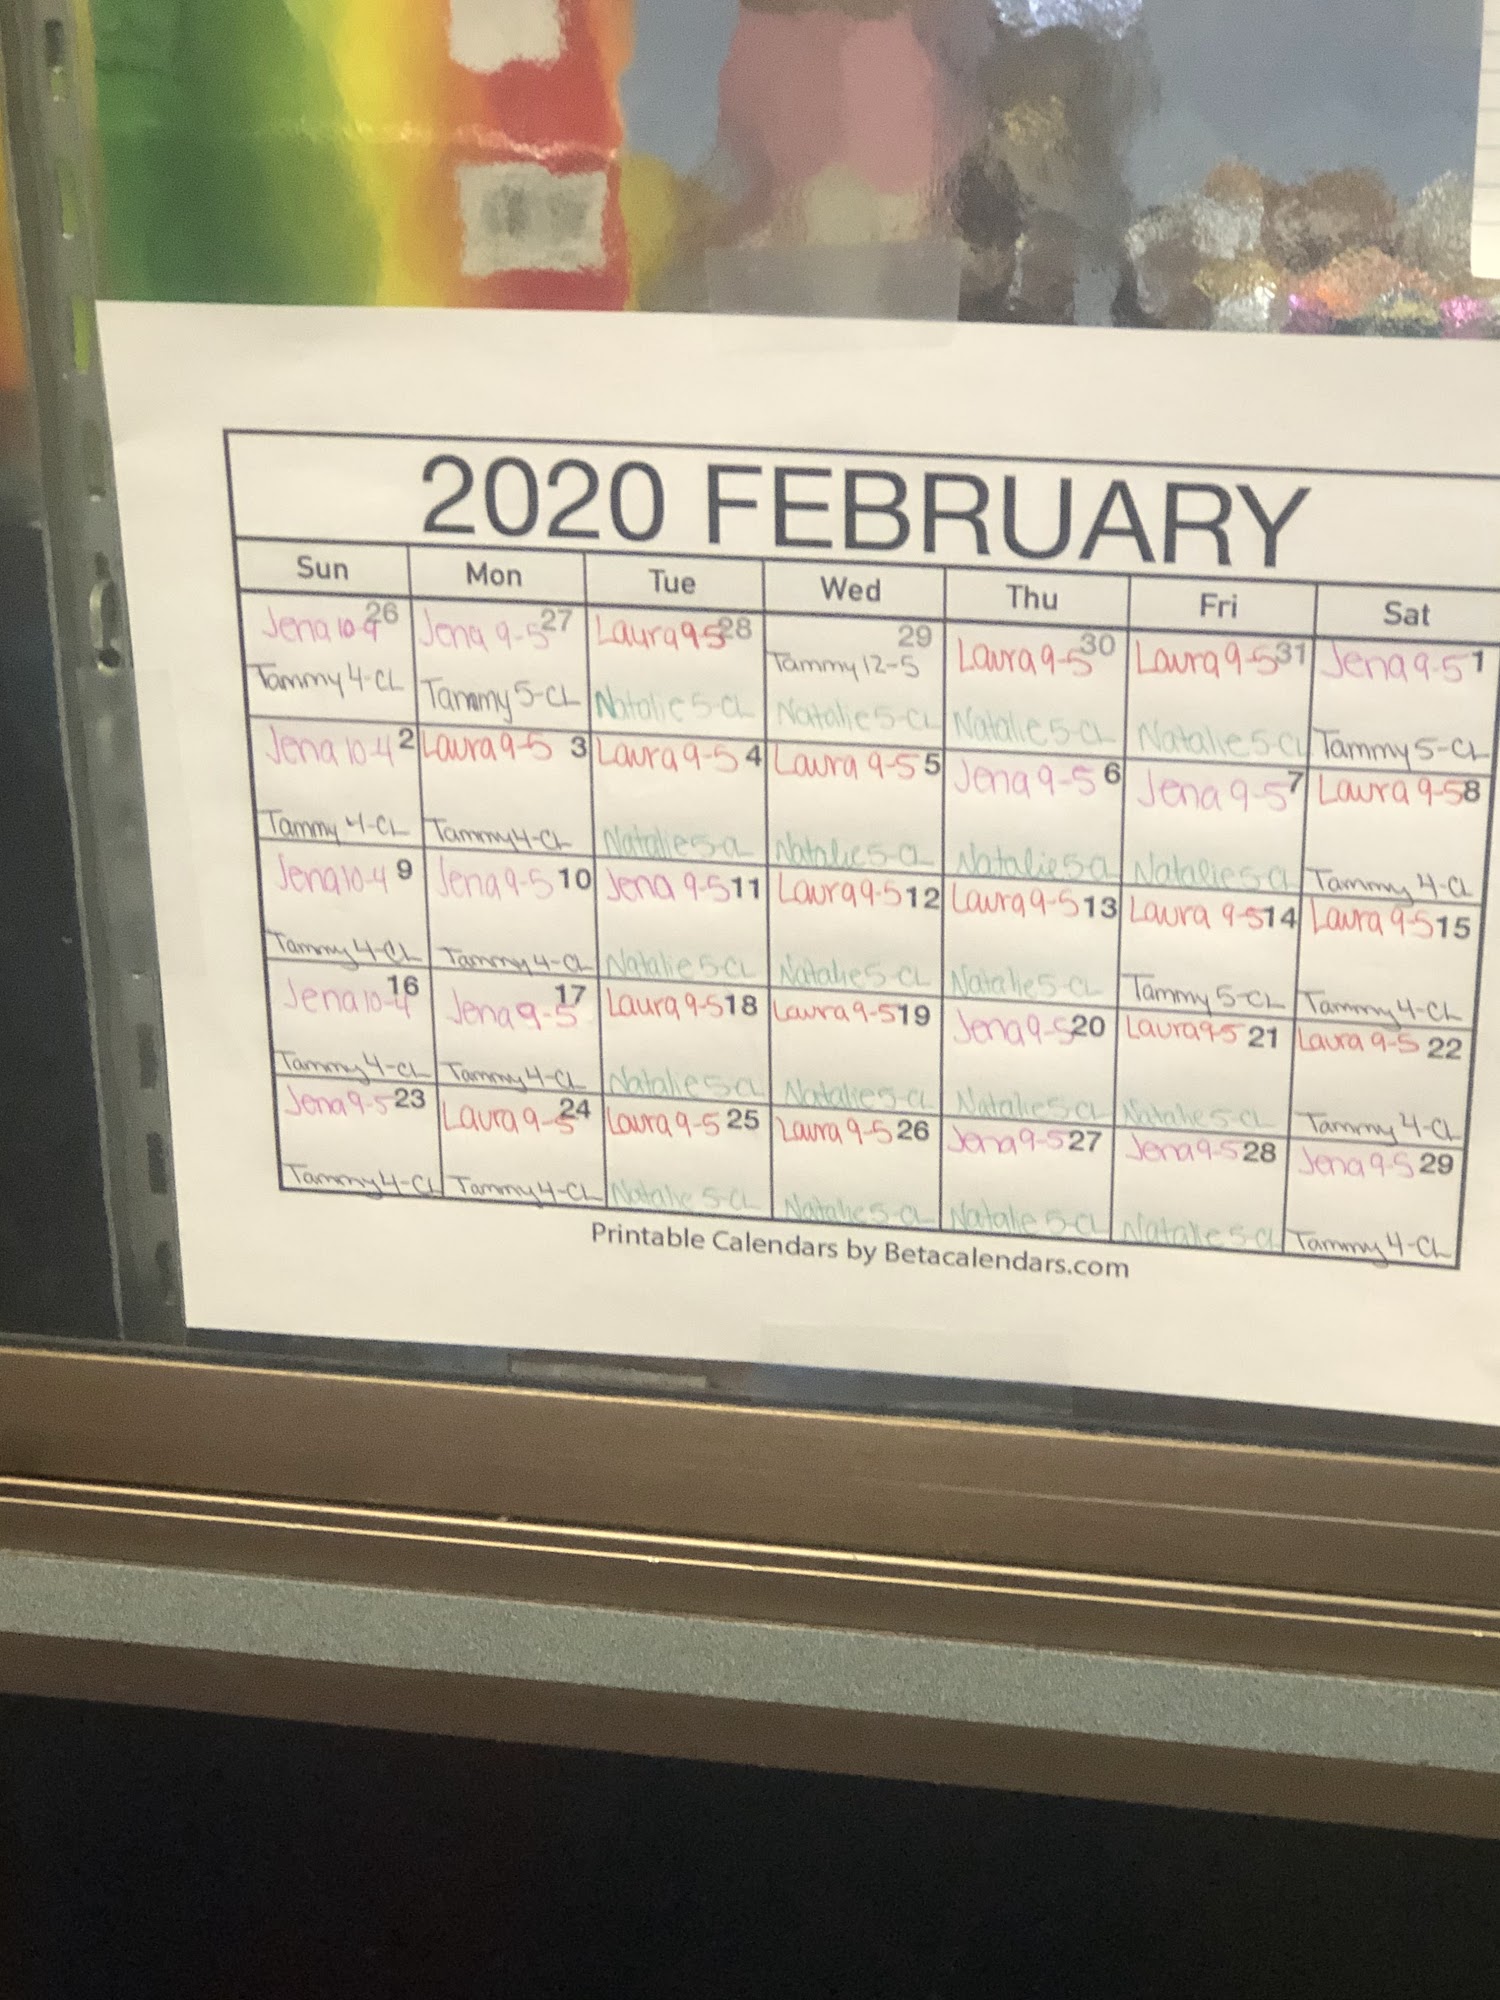 2020 FEBRUARY
Sun Mon Tue Wed Thu Fri Sat
26 27 28 29 30 31 1
Jena 10-4 Jena 9-5 Laura 9-5 Tammy 12-5 Laura 9-5 Laura 9-5 Jena 9-5
Tammy 4-CL Tammy 5-CL Natalie 5-CL Natalie 5-CL Natalie 5-CL Natalie 5-CL Tammy 5-CL
2 3 4 5 6 7 8
Jena 10-4 Laura 9-5 Laura 9-5 Laura 9-5 Jena 9-5 Jena 9-5 Laura 9-5
Tammy 4-CL Tammy 4-CL Natalie 5-CL Natalie 5-CL Natalie 5-CL Natalie 5-CL Tammy 4-CL
9 10 11 12 13 14 15
Jena 10-4 Jena 9-5 Jena 9-5 Laura 9-5 Laura 9-5 Laura 9-5 Laura 9-5
Tammy 4-CL Tammy 4-CL Natalie 5-CL Natalie 5-CL Natalie 5-CL Tammy 5-CL Tammy 4-CL
16 17 18 19 20 21 22
Jena 10-4 Jena 9-5 Laura 9-5 Laura 9-5 Jena 9-5 Laura 9-5 Laura 9-5
Tammy 4-CL Tammy 4-CL Natalie 5-CL Natalie 5-CL Natalie 5-CL Natalie 5-CL Tammy 4-CL
23 24 25 26 27 28 29
Jena 9-5 Laura 9-5 Laura 9-5 Laura 9-5 Jena 9-5 Jena 9-5 Jena 9-5
Tammy 4-CL Tammy 4-CL Natalie 5-CL Natalie 5-CL Natalie 5-CL Natalie 5-CL Tammy 4-CL
Printable Calendars by Betacalendars.com